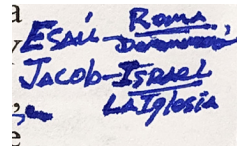 a
Esaú - Roma
Jacob - Israel
La Iglesia
e